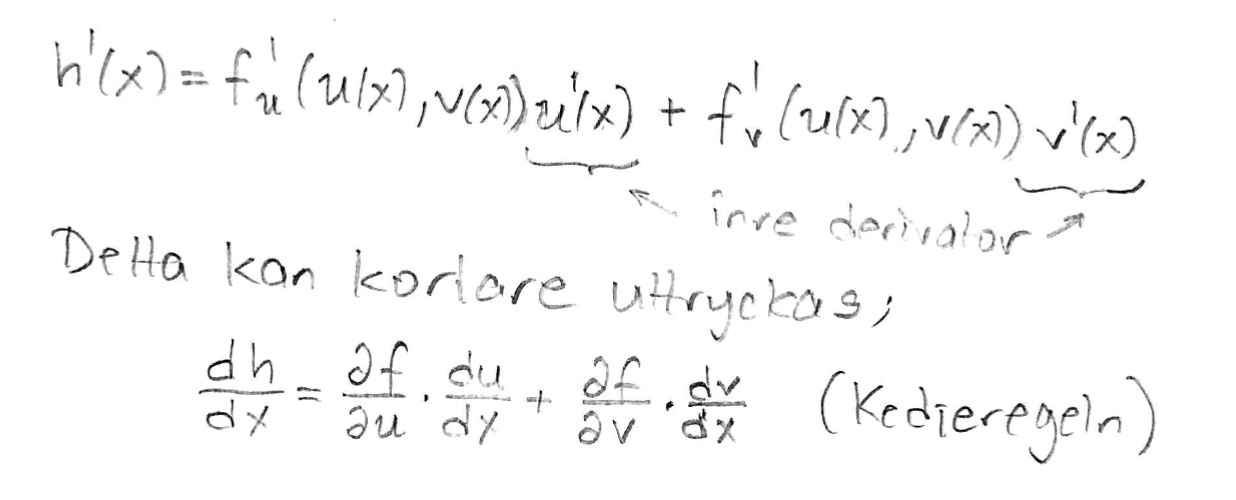 h'(x) = f'_u (u(x), v(x)) u'(x) + f'_v (u(x), v(x)) v'(x)
inre derivator
Detta kan kortare uttryckas;
dh/dx = ∂f/∂u · du/dx + ∂f/∂v · dv/dx (Kedjeregeln)